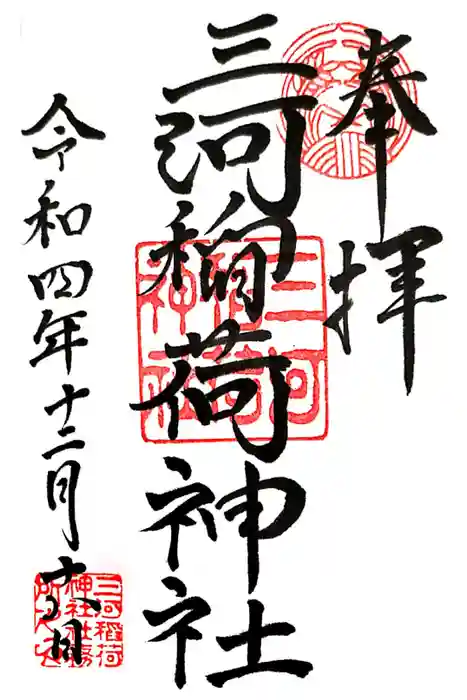 奉拝
三河稲荷神社
三河
稲荷
神社
令和四年十二月日
三河稲荷
神社社務